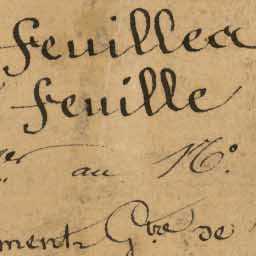 feuilles
feuille
er au N°.
ment Gbre de